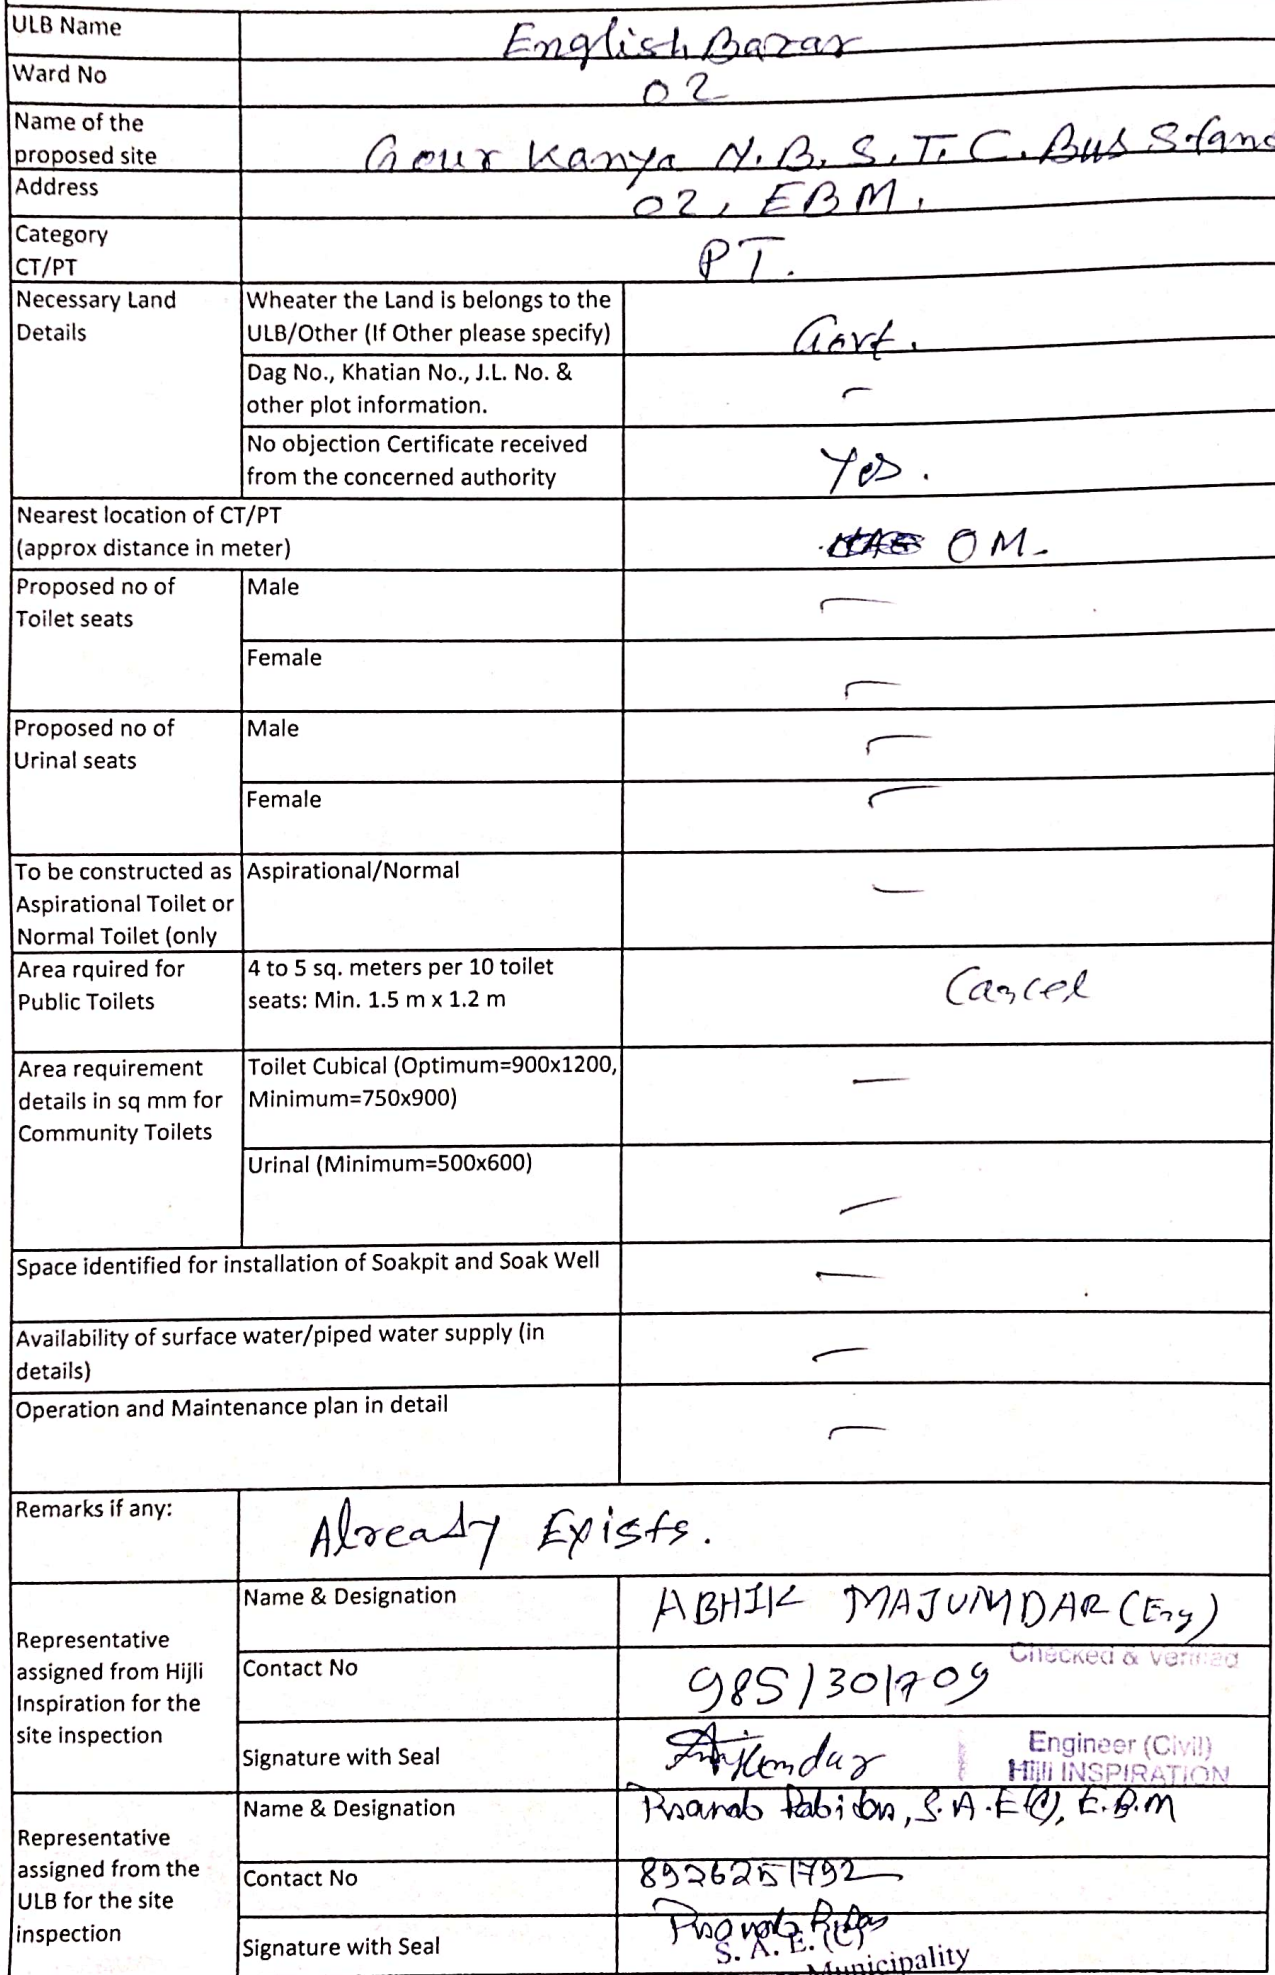 ULB Name
English Bazar
Ward No
02
Name of the
proposed site
Gour Kanya N.B.S.T.C. Bus Stand
Address
02, EBM.
Category
CT/PT
PT.
Necessary Land
Details
Wheater the Land is belongs to the
ULB/Other (If Other please specify)
Govt.
Dag No., Khatian No., J.L. No. &
other plot information.
-
No objection Certificate received
from the concerned authority
Yes.
Nearest location of CT/PT
(approx distance in meter)
0 M.
Proposed no of
Toilet seats
Male
-
Female
-
Proposed no of
Urinal seats
Male
-
Female
-
To be constructed as
Aspirational Toilet or
Normal Toilet (only
Aspirational/Normal
-
Area rquired for
Public Toilets
4 to 5 sq. meters per 10 toilet
seats: Min. 1.5 m x 1.2 m
Cancel
Area requirement
details in sq mm for
Community Toilets
Toilet Cubical (Optimum=900x1200,
Minimum=750x900)
-
Urinal (Minimum=500x600)
-
Space identified for installation of Soakpit and Soak Well
-
Availability of surface water/piped water supply (in
details)
-
Operation and Maintenance plan in detail
-
Remarks if any:
Already Exists.
Representative
assigned from Hijli
Inspiration for the
site inspection
Name & Designation
ABHIK MAJUMDAR (Eng)
Contact No
9851301709
Checked & Verified
Signature with Seal
Engineer (Civil)
Hijli INSPIRATION
Representative
assigned from the
ULB for the site
inspection
Name & Designation
Pranab Rabidas, S.A.E(C), E.B.M
Contact No
8926251792
Signature with Seal
S. A. E. (C)
Municipality